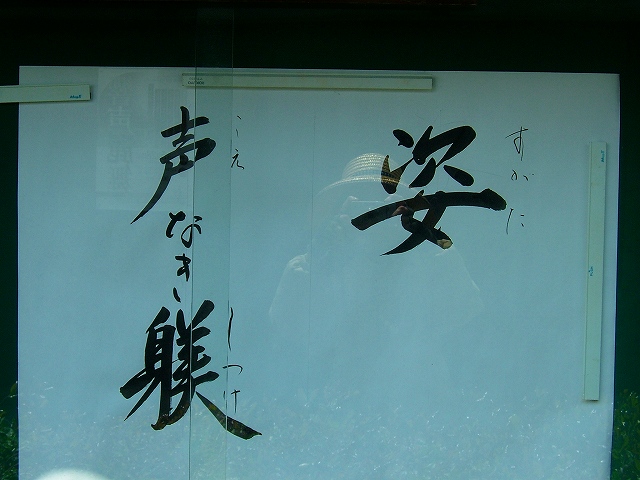 姿
すがた
声なき躾
こえ
しつけ